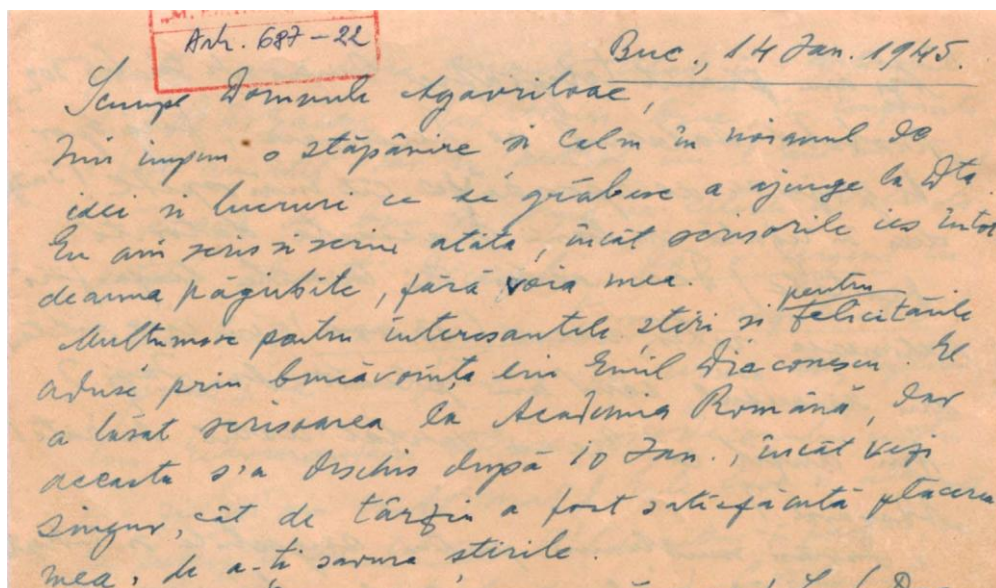 Arh. 687-22
Buc., 14 Jan. 1945.
Scumpe Domnule Agavriloae,
Îmi impun o stăpânire și calm în noianul de
idei și lucruri ce se grăbesc a ajunge la Dta.
Eu am scris și scriu atâta, încât scrisorile ies întot
deauna păgubite, fără voia mea.
Mulțumesc pentru interesantele știri și pentru felicitările
aduse prin bunăvoința lui Emil Diaconescu. El
a lăsat scrisoarea la Academia Română, dar
aceasta s'a deschis după 10 Jan., încât vezi
singur, cât de târziu a fost satisfăcută plăcerea
mea, de a-ți savura știrile.